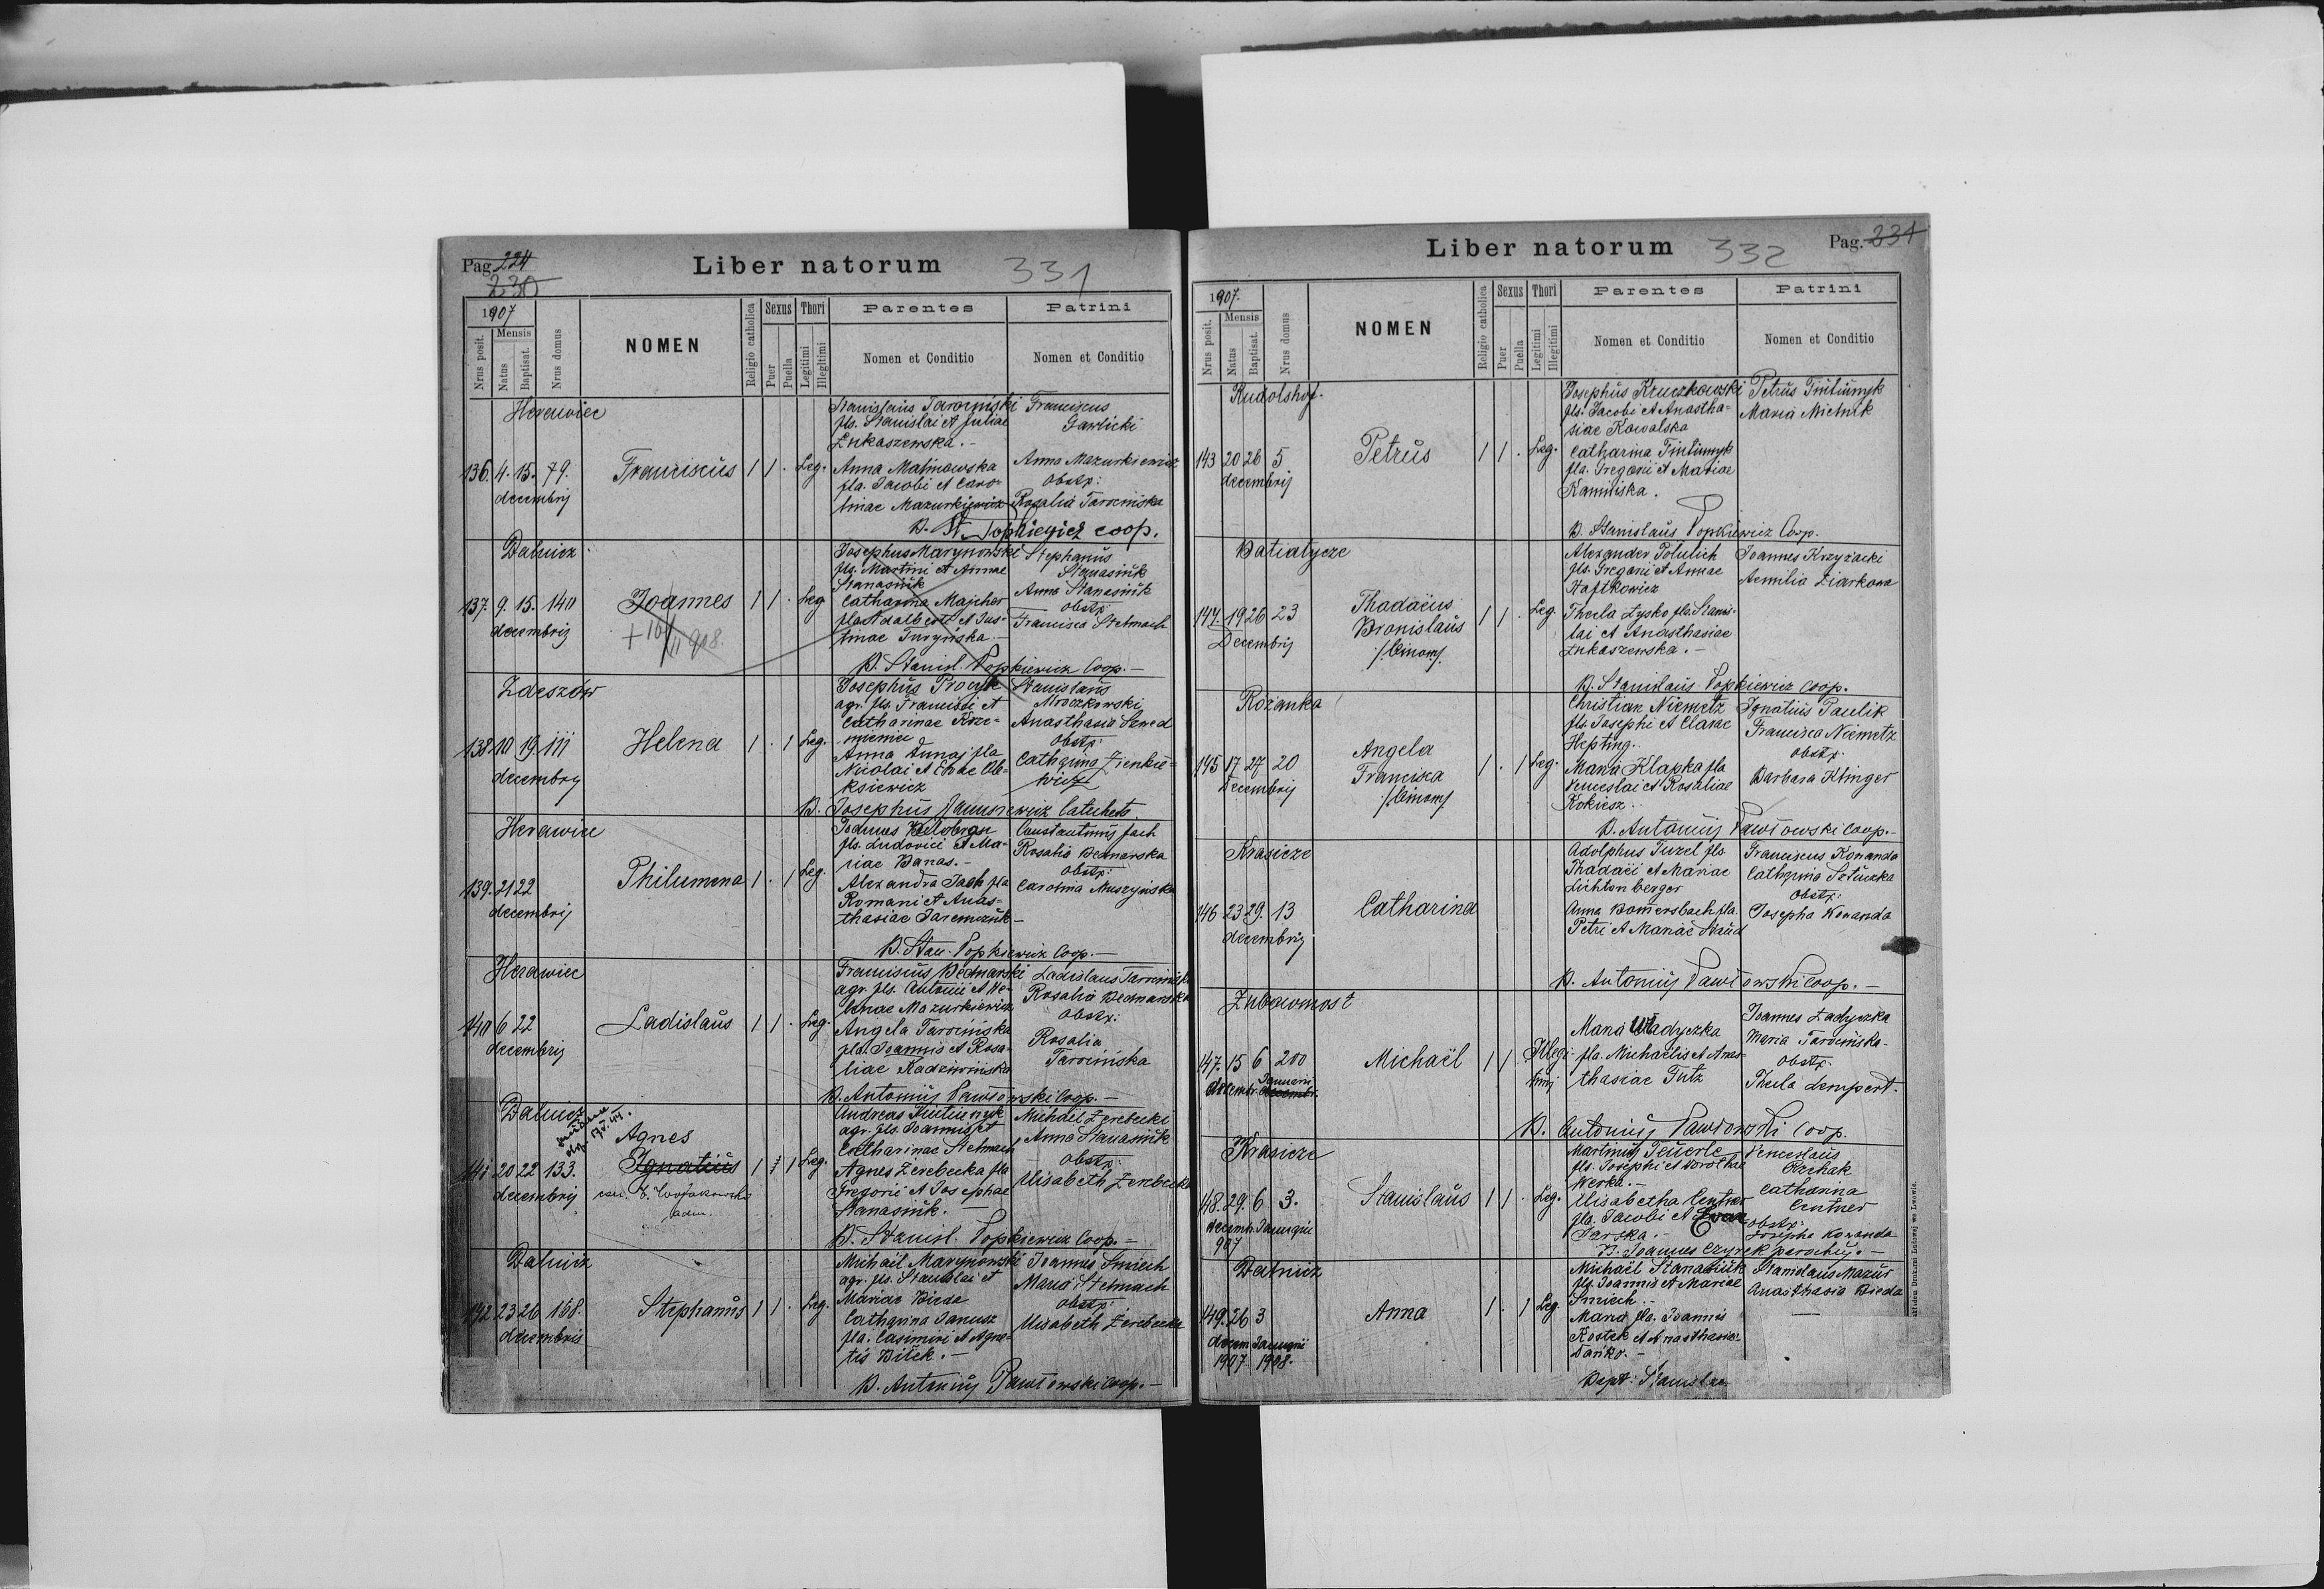 Pag. 224
230
Liber natorum
331
1907
Nrus posit.
Mensis
Natus
Baptisat.
Nrus domus
NOMEN
Religio catholica
Sexus
Puer
Puella
Thori
Legitimi
Illegitimi
Parentes
Nomen et Conditio
Patrini
Nomen et Conditio
Herawiec
136. 4. 15. 79.
decembrij
Franciscus
1 1 . Leg.
Stanislaus Tarociński
fls. Stanislai et Juliae
Łukaszewska. -
Anna Malinowska
fla. Jacobi et Caro-
linae Mazurkiewicz
Franciscus
Gawlicki
Anna Mazurkiewicz
obstx:
Rosalia Tarocińska
B. St. Popkiewicz coop.
Dalnicz
137. 9. 15. 140
decembrij
Joannes
+ 10/II 908.
1 1 . Leg
Josephus Marynowski
fls. Martini et Annae
Stanasiuk
Catharina Majcher
fla Adalberti et Jus-
tinae Turyńska
Stephanus
Stanasiuk
Anna Stanasiuk
obstx:
Francisca Stelmach
B. Stanisl. Popkiewicz Coop. -
Żdeszów
138 10 19 111
decembrij
Helena
1 . 1 Leg.
Josephus Procyk
agr. fls. Francisci et
Catharinae Krze-
mieniec
Anna Dunaj fla
Nicolai et Evae Ole-
ksiewicz
Stanislaus
Mroczkowski
Anasthasia Szwed
obstx:
Catharina Zienkie-
wicz
B. Josephus Catechets.
Herawiec
139. 21 22
decembrij
Philumena
1 . 1 Leg.
Joannes
fls. Ludovici et Ma-
riae Banas. -
Alexandra Jach fla
Romani et Anas-
thasiae Jaremczuk -
Constantinus Jach
Rosalia Bednarska
obstx:
Carolina Muszyńska
B. Stan. Popkiewicz Coop. -
Herawiec
140 6 22
decembrij
Ladislaus
1 1 . Leg.
Franciscus Bednarski
agr. fls. Antonii et He-
lenae Mazurkiewicz
Angela Tarocińska
fla. Joannis et Rosa-
liae Radziwińska
Ladislaus Tarociński
Rosalia Bednarska
obstx:
Rosalia
Tarocińska
B. Antonius Pawłowski Coop. -
Dalnicz
141 20 22 133.
decembrij
Agnes
Ignatius
adm.
1 1 1 Leg.
Andreas
agr. fls. Joannis et
Catharinae Stelmach
Agnes Zerebecka fla
Gregorii et Josephae
Stanasiuk. -
Michael Zerebecki
Anna Stanasiuk
obstx:
Elisabeth Zerebecka
B. Stanisl. Popkiewicz Coop. -
Dalnicz
142 23 26 168.
decembris
Stephanus
1 1 . Leg.
Michaël Marynowski
agr. fls. Stanislai et
Mariae Bieda
Catharina Janusz
fla. Casimiri et Agne-
tis Bilek. -
Joannes Śmiech
Maria Stelmach
obstx:
Elisabeth Zerebecka
B. Antonius Pawłowski coop. -
Liber natorum
332
Pag. 231
1907.
Nrus posit.
Mensis
Natus
Baptisat.
Nrus domus
NOMEN
Religio catholica
Sexus
Puer
Puella
Thori
Legitimi
Illegitimi
Parentes
Nomen et Conditio
Patrini
Nomen et Conditio
Rudolshof.
143 20 26 5
decembrij
Petrus
1 1 . Leg.
Josephus Kruczkowski
fls. Jacobi et Anastha-
siae Kowalska
Catharina
fla. Gregorii et Mariae
Kamińska.
Petrus
Maria Mielnik
B. Stanislaus Popkiewicz Coop.
Batiatycze
147. 19 26 23
Decembrij
Thadaeus
Bronislaus
/binom/
1 1 . Leg.
Alexander Polulich
fls. Gregorii et Annae
Haftkowicz
Thecla Łysko fla. Stanis-
lai et Anasthasiae
Łukaszewska. -
Joannes Krzyżacki
Aemilia Ziarkowa
B. Stanislaus Popkiewicz coop.
Rożanka
145 17 27 20
Decembrij
Angela
Francisca
/binom/
1 . 1 Leg.
Christian Niemetz
fls. Josephi et Clarae
Hepting.
Maria Klapka fla
Venceslai et Rosaliae
Kokiesz.
Ignatius Paulik
Francisca Niemetz
obstx:
Barbara Klinger
B. Antonius Pawłowski coop. -
Krasicze
146 23 29. 13
decembrij
Catharina
Adolphus Tuzel fls
Thadaei et Mariae
Lichtenberger
Anna Bomersbach fla.
Petri et Mariae Staud
Franciscus Konanda
Catharina
obstx:
Josepha Konanda
B. Antonius Pawłowski coop. -
Żubowmost
147. 15 6 200
decembr. Januarii
decembr.
Michaël
1 1 Illegi-
timj
Maria Władyczka
fla. Michaëlis et Anas-
thasiae Tutz
Joannes Ładyczka
Maria Tarocińska -
obstx:
Thecla Lempert.
B. Antonius Pawłowski Coop.
Krasicze
148. 29. 6 3.
decembr. Januarii
907
Stanislaus
1 1 . Leg.
Martinus Feuerle
fls. Josephi et Dorotheae
Werka. -
Elisabetha Centner
fla. Jacobi et Evae
Jarska. -
Venceslaus
Catharina
Centner
obstx:
Josepha Konanda
B. Joannes Czyrek parochus. -
Dalnicz
149. 26 3
decem. Januarii
1907 1908.
Anna
1 . 1 Leg.
Michaël Stanasiuk
fls. Joannis et Mariae
Śmiech. -
Maria fla. Joannis
Kostek et Anasthasiae
Dańko. -
Stanislaus Mazur
Anasthasia Bieda
—
Bapt: Stanislae